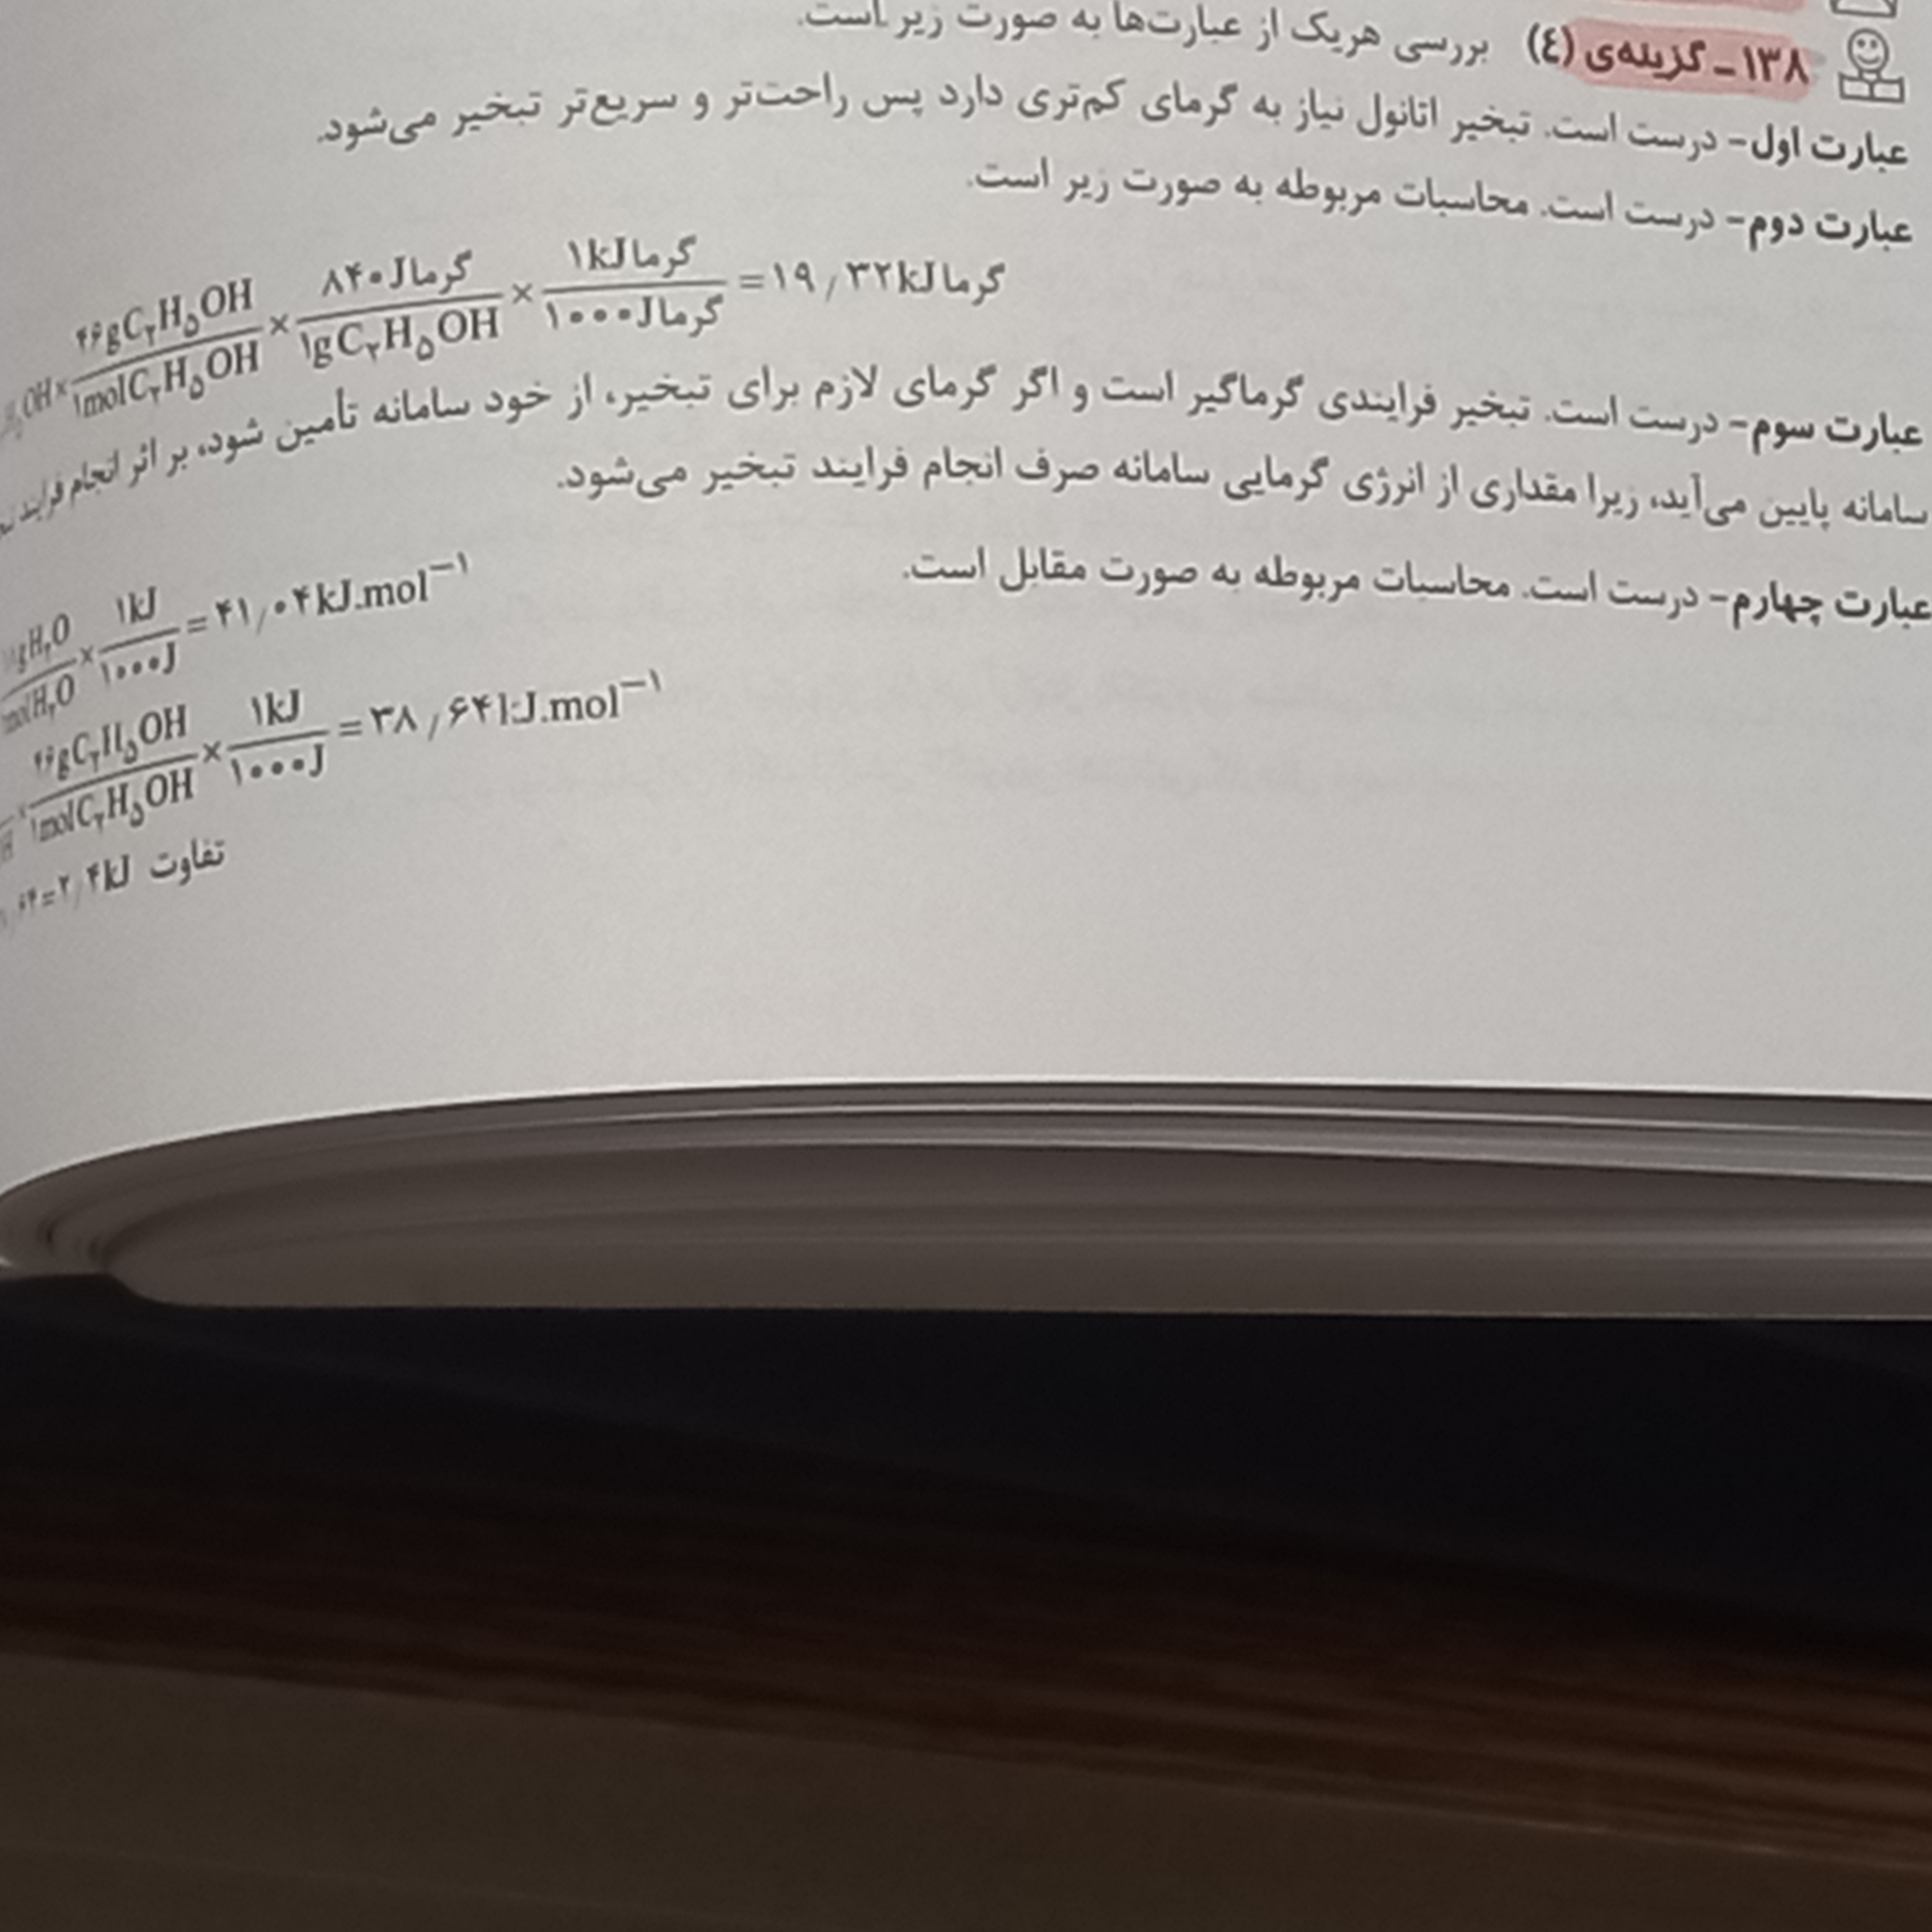 ۱۳۸ـ گزینه‌ی (٤) بررسی هریک از عبارت‌ها به صورت زیر است.
عبارت اول- درست است. تبخیر اتانول نیاز به گرمای کم‌تری دارد پس راحت‌تر و سریع‌تر تبخیر می‌شود.
عبارت دوم- درست است. محاسبات مربوطه به صورت زیر است.
OH × ۴۶gC₂H₅OH / ۱molC₂H₅OH × ۸۴۰J گرما / ۱gC₂H₅OH × ۱kJ گرما / ۱۰۰۰J گرما = ۱۹/۳۲kJ گرما
عبارت سوم- درست است. تبخیر فرایندی گرماگیر است و اگر گرمای لازم برای تبخیر، از خود سامانه تأمین شود، بر اثر انجام فرایند
سامانه پایین می‌آید، زیرا مقداری از انرژی گرمایی سامانه صرف انجام فرایند تبخیر می‌شود.
عبارت چهارم- درست است. محاسبات مربوطه به صورت مقابل است.
gH₂O / molH₂O × ۱kJ / ۱۰۰۰J = ۴۱/۰۴kJ.mol⁻¹
۴۶gC₂H₅OH / ۱molC₂H₅OH × ۱kJ / ۱۰۰۰J = ۳۸/۶۴kJ.mol⁻¹
۶۴=۲/۴kJ تفاوت